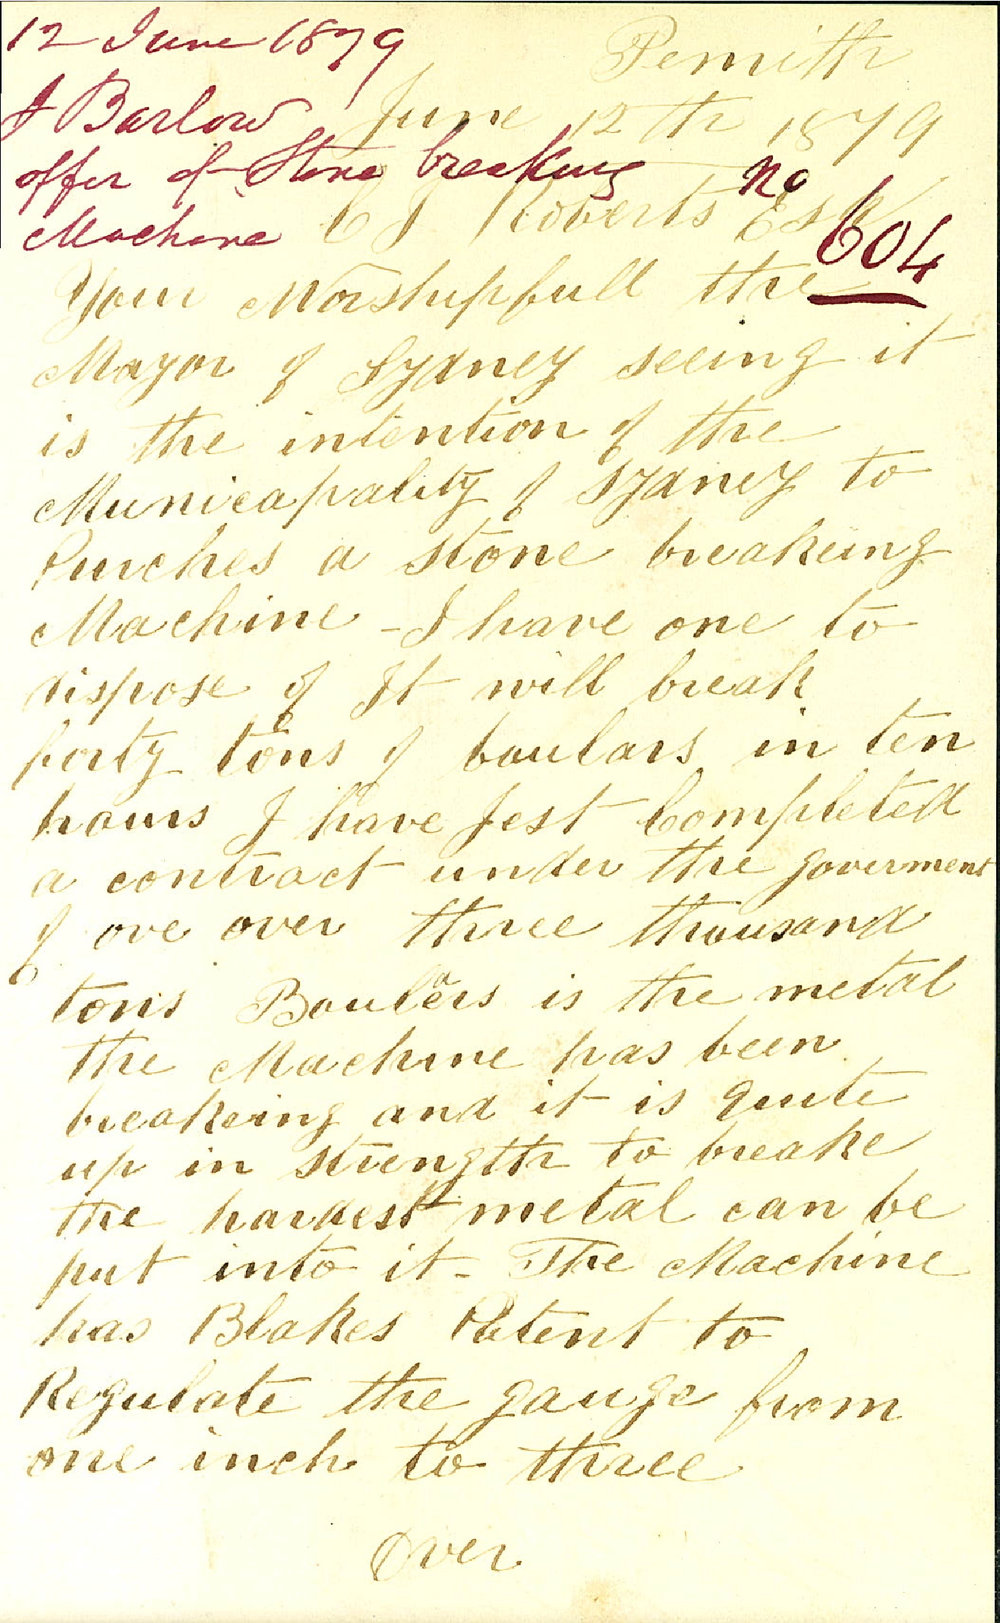 12 June 1879
J Barlow
offer of Stone breaking
Machine
no
604
Penrith
June 12th 1879
C J Roberts Esq
Your Worshipfull the
Mayor of Sydney seeing it
is the intention of the
Municapality of Sydney to
Purches a stone breakeing
Machine - I have one to
dispose of It will break
forty tons of boulars in ten
hours I have Jest Completed
a contract under the goverment
of ove over three thousand
tons Boulars is the metal
the Machine has been
breakeing and it is quite
up in strength to breake
the hardest metal can be
put into it - The Machine
has Blakes Patent to
Regulate the gauge from
one inch to three
Over